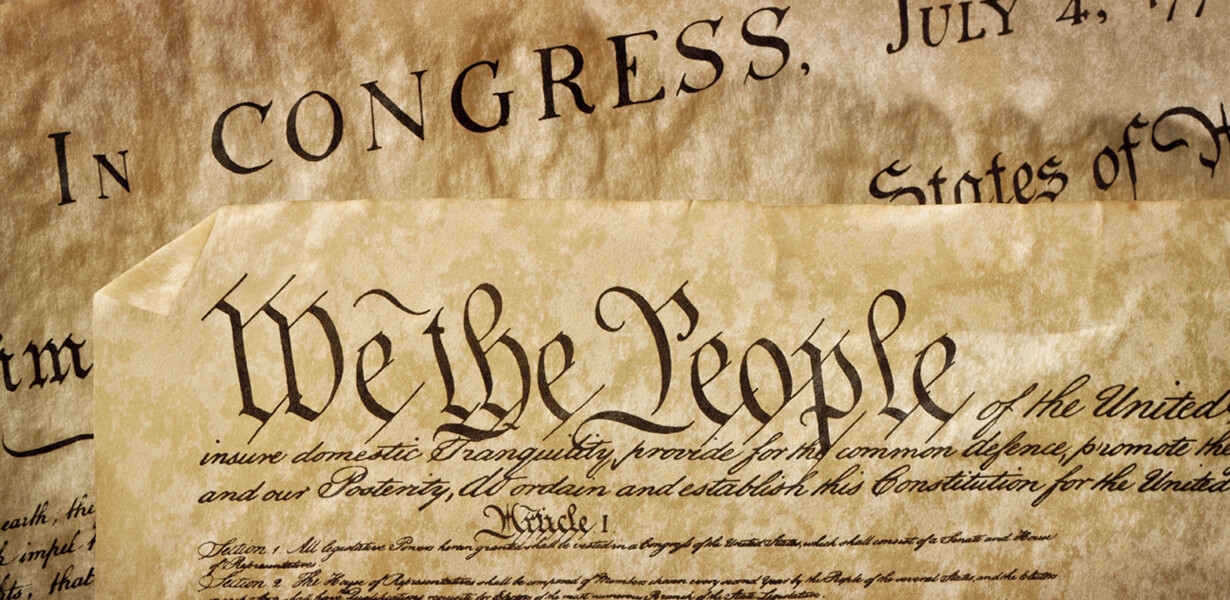 In CONGRESS, July 4, 177
States of
im
We the People of the United
insure domestic Tranquility, provide for the common defence, promote the
and our Posterity, do ordain and establish this Constitution for the United
Article I
Section 1. All legislative Powers herein granted shall be vested in a Congress of the United States, which shall consist of a Senate and House
of Representatives.
Section 2. The House of Representatives shall be composed of Members chosen every second Year by the People of the several States, and the Electors
Qualifications requisite for Electors of the most numerous Branch of the State Legislature.
earth, the
impel
that